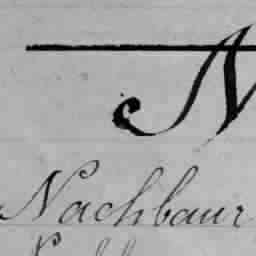 N
Nachbaur